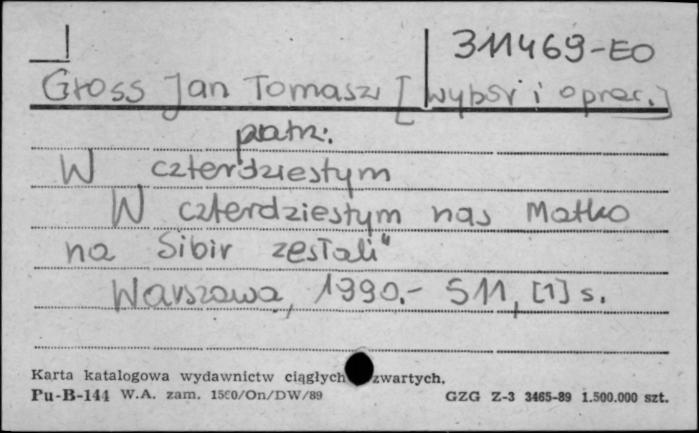 311469-EO
Gross Jan Tomasz [wybór i oprac.]
patrz:
W czterdziestym
W czterdziestym nas Matko
na Sibir zesłali"
Warszawa, 1990.- 511, [1] s.
Karta katalogowa wydawnictw ciągłych zwartych.
Pu-B-144 W.A. zam. 1560/On/DW/89 GZG Z-3 3465-89 1.500.000 szt.